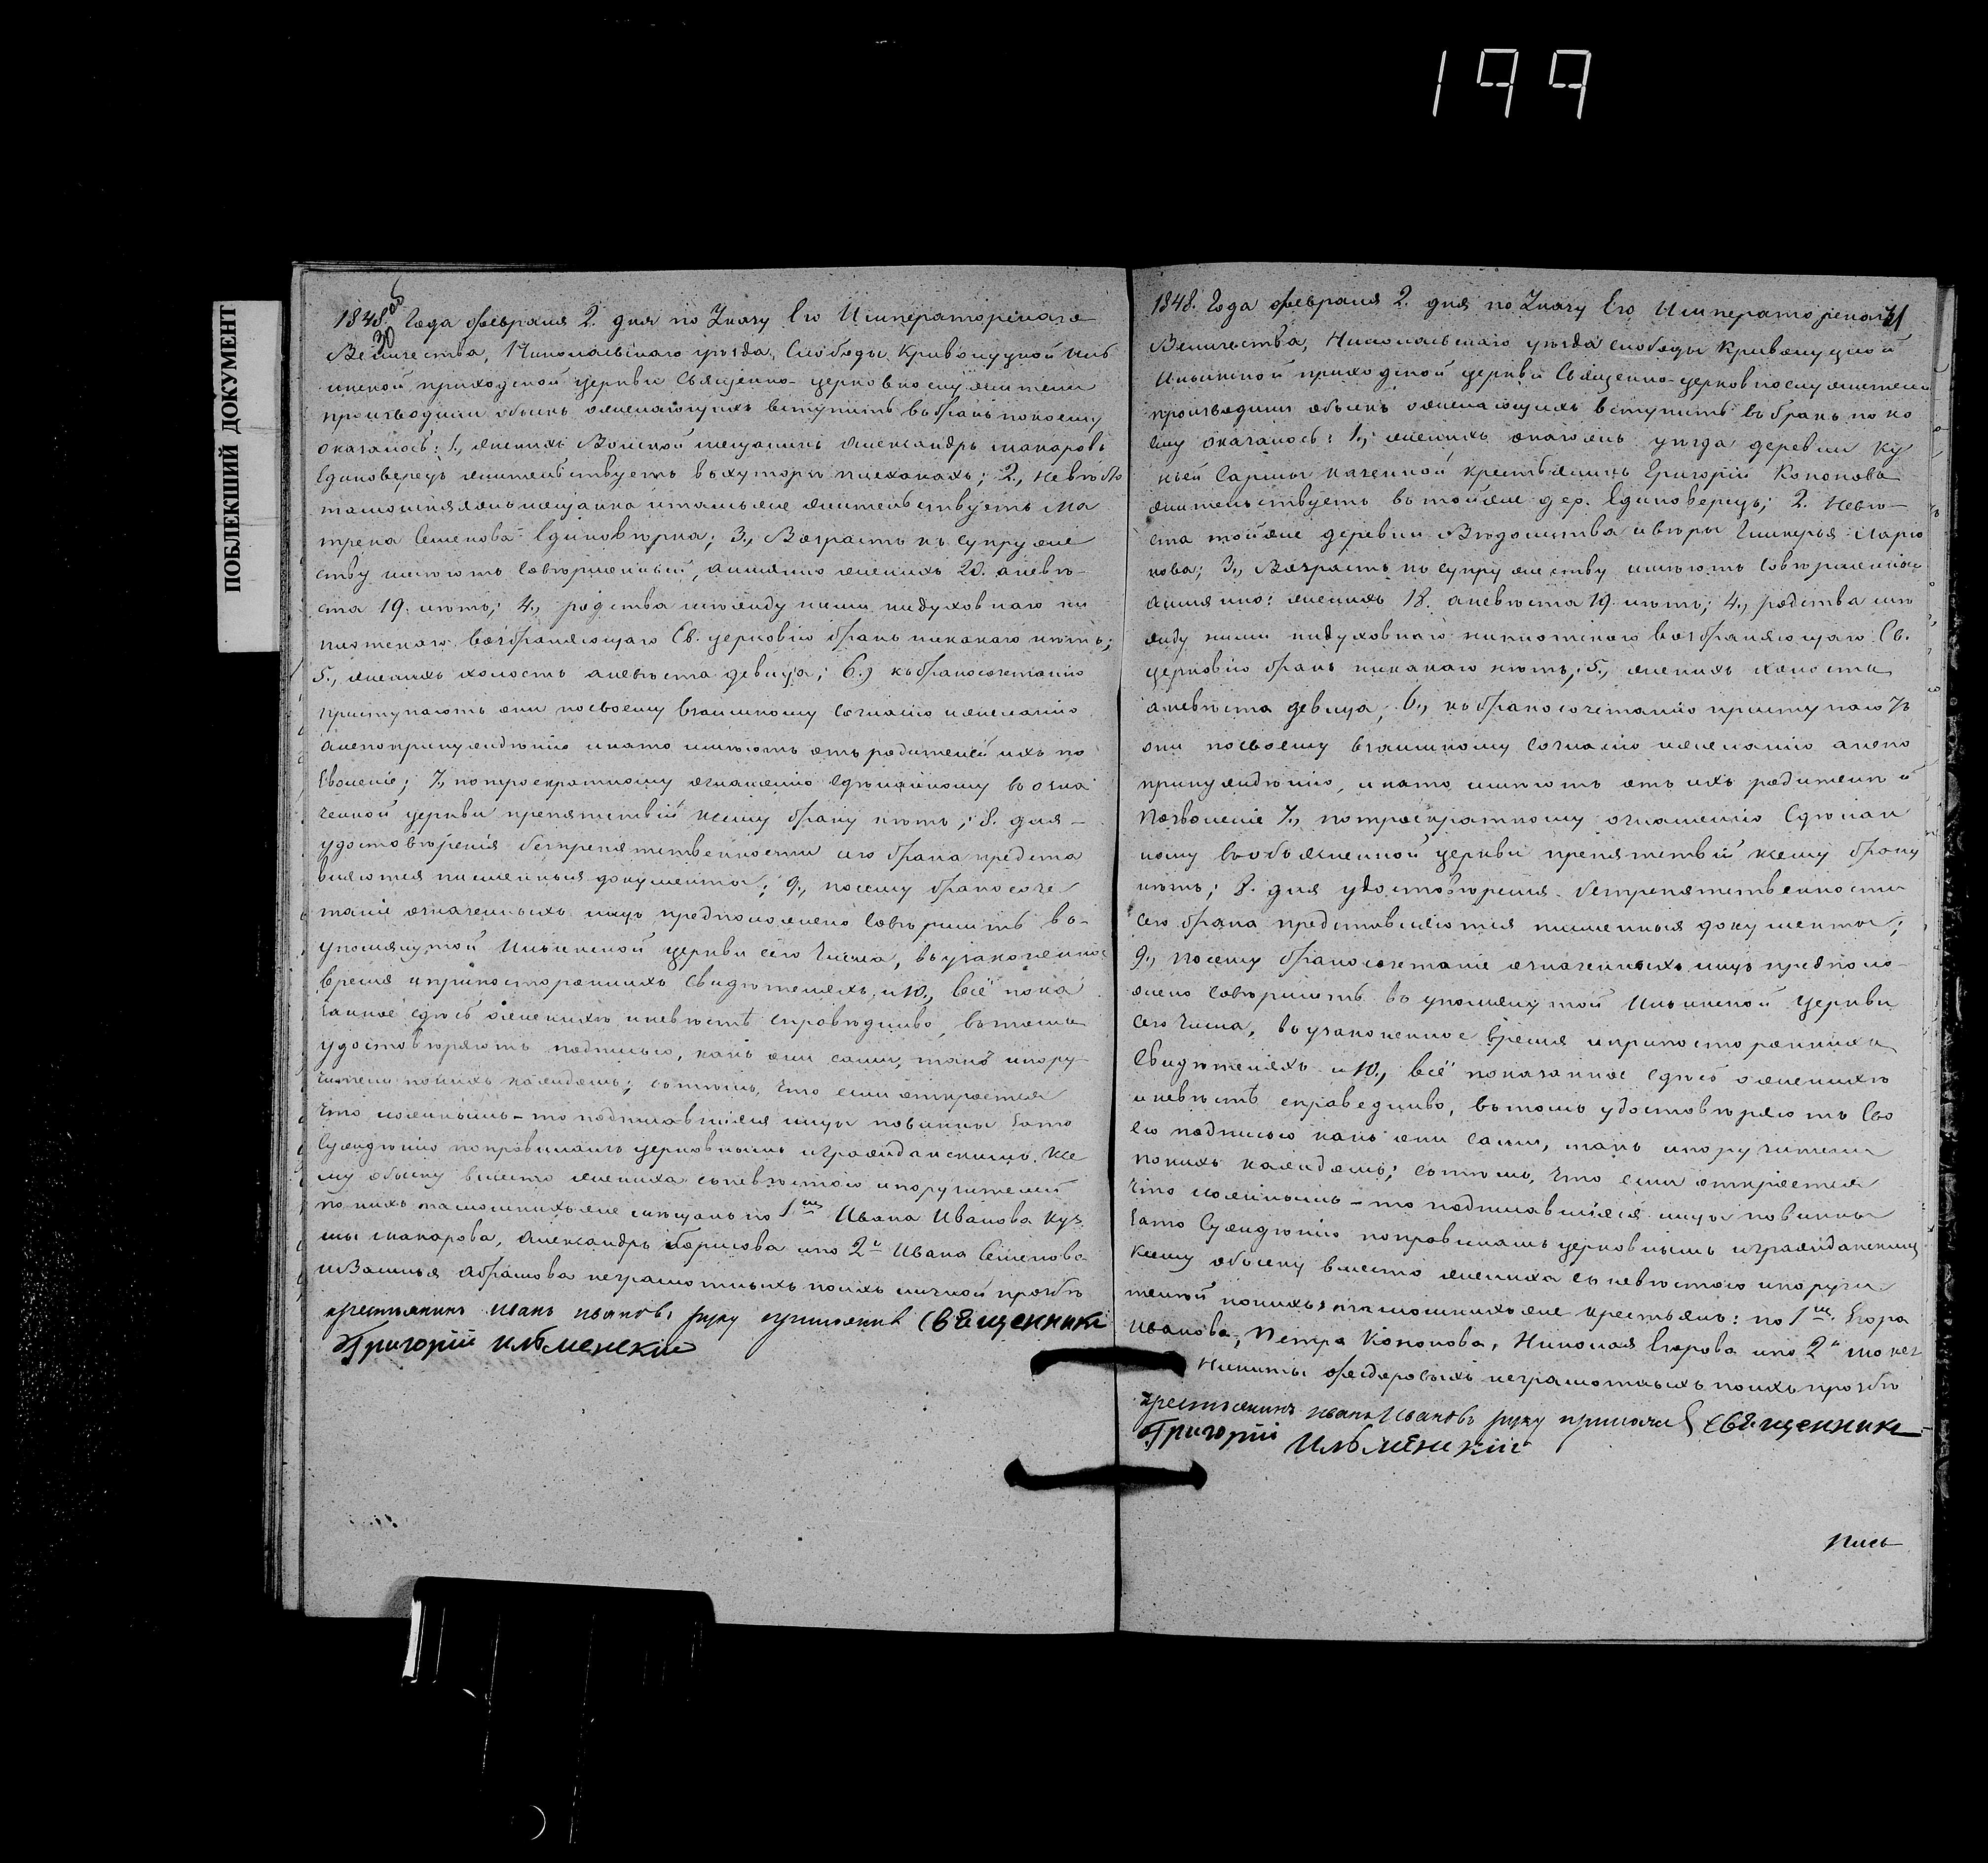 199
ПОБЛЕКШИЙ ДОКУМЕНТ
30 об
1848. Года февраля 2. дня по Указу Его Императорскаго
Величества, Николаевскаго уезда, Слободы Криволуцкой Иль
инской приходской церкви Священно-церковнослужители
производили обыск о желающих вступить в брак по коему
оказалось: 1., жених мещанин Александр Макаров
Единоверец жительствует в хуторе; 2., Невеста
тамошняяже мещанка и тамже жительствует Ма
трена Семенова Единоверка; 3., Возраст к супруже
ству имеют совершенный, а именно жених 20. а неве-
ста 19. лет; 4., родства между ними ни духовнаго ни
плотскаго возбраняющаго Св. церковію брак никакаго нет;
5., жених холост а невеста девица; 6., к бракосочетанію
приступают они по своему взаимному согласію и желанію
а не по принужденію и на то имеют от родителей их по
зволеніе; 7., по троекратному оглашенію сделанному в озна
ченной церкви препятствій к сему браку нет; 8. для
удостоверенія безпрепятственности сего брака предста
вляются письменныя документы; 9., посему бракосоче
таніе означенных лиц предположено совершить в
упомянутой Ильинской церкви сего числа, в узаконенное
время и при посторонних свидетелях и 10., всё пока
занное здесь о женихе и невесте справедливо, в том
удостоверяют подписью, как они сами, так и пору-
чители по них каждом; с тем, что если откроется
что ложным-то подписавшіеся лица повинны зато
сужденію по правилам церковным и гражданским. К се
му обыску вместо жениха с невестою и поручителей
по них тамошних же мещан по 1м Ивана Иванова Кузь
мы Макарова, Александр Борисова и по 2й Ивана Семенова
и Василья Абрамова неграмотных по их личной прозбе
крестьянин Иван Иванов руку приложил Священник
Григорій Ильменскій
31
1848. Года февраля 2. дня по Указу Его Императорскаго
Величества, Николаевскаго уезда слободы Криволуцкой
Ильинской приходской церкви Священно-церковнослужители
производили обыск о желающих вступить в брак по ко
ему оказалось: 1., жених уезда деревни Ку
казенной крестьянин Григорій Кононов
жительствует в тойже дер. Единоверец; 2. Неве-
ста тойже деревни ведомства и веры Гликерья Ларіо
нова; 3., Возраст к супружеству имеют совершенной
а именно: жених 18. а невеста 19. лет; 4., родства ме
жду ними ни духовнаго ни плотскаго возбраняющаго Св.
церковію брак никакаго нет; 5., жених холост
а невеста девица; 6., к бракосочетанію приступают
они по своему взаимному согласію и желанію а не по
принужденію, и на то имеют от их родителей
позволеніе 7., по троекратному оглашенію сделан
ному в церкви препятствій к сему браку
нет; 8. для удостоверенія безпрепятственности
сего брака представляются письменныя документы;
9., посему бракосочетаніе означенных лиц предполо-
жено совершить в упомянутой Ильинской церкви
сего числа, в узаконенное время и при посторонних
свидетелях и 10., всё показанное здесь о женихе
и невесте справедливо, в том удостоверяют сво
ею подписью как они сами, так и поручители
по них каждом; с тем, что если откроется
что ложным-то подписавшіяся лица повинны
зато сужденію по правилам церковным и гражданским
К сему обыску вместо жениха с невестою и поручи
телей по них тамошних же крестьян: по 1м Егора
Иванова, Петра Кононова, Николая Егорова и по 2й
Никиты Федоровых неграмотных по их прозбе
крестьянин Иван Иванов руку приложил Священник
Григорій Ильменскій